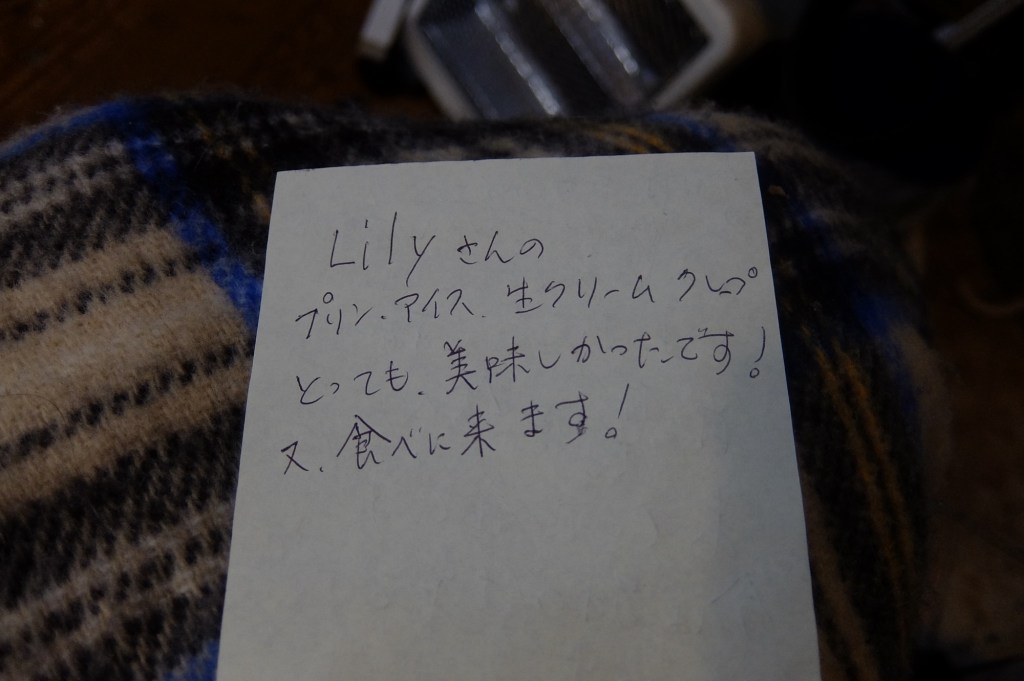 Lilyさんの
プリン、アイス、生クリームクレープ
とっても、美味しかったです!
又、食べに来ます!